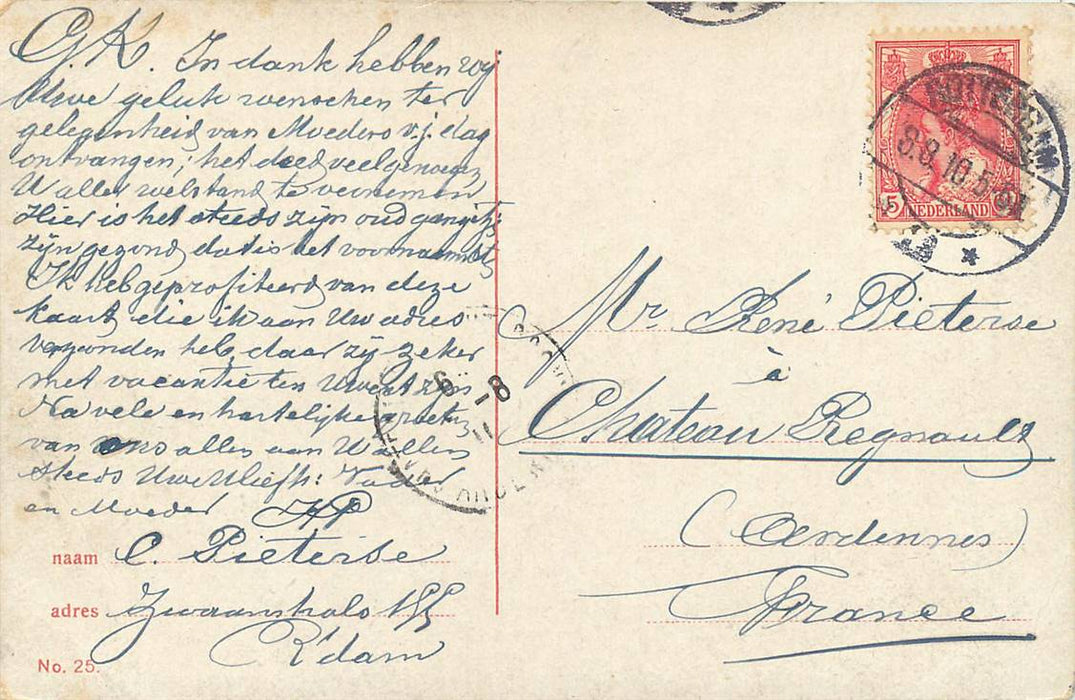 G.K. In dank hebben wij
Uwe geluk wenschen ter
gelegenheid van Moeders v.j. dag
ontvangen; het deed veel genoeg;
U allen welstand te vernemen
Hier is het steeds zijn oud gangtj;
zijn gezond dat is het voornaamst;
Ik heb geprofiteerd van deze
kaart die ik aan Uw adres
verzonden heb, daar zij zeker
met vacantie ten Uwent zijn
Na vele en hartelijke groet;
van ons allen aan U allen
steeds Uwe liefh: Vader
en Moeder HP
naam C. Pieterse
adres Zwaanshals 155
R'dam
No. 25.
ROTTERDAM
8.8.10.5
5 NEDERLAND
6 - 8
Mr René Pieterse
à
Chateau Regnault
(Ardennes)
France